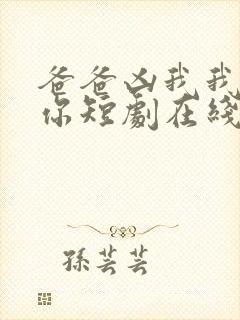 爸爸凶我我
你短劇在綫
孫芸芸